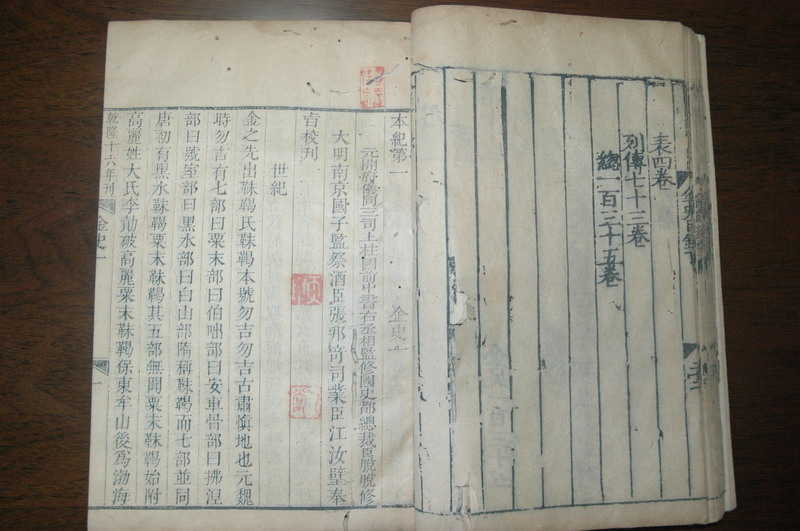 表四卷
列傳七十三卷
總一百三十五卷
本紀第一
金史一
元開府儀同三司上柱國前中書右丞相監修國史都總裁臣脫脫修
大明南京國子監祭酒臣張邦奇司業臣江汝璧奉
旨校刊
世紀
金之先出靺鞨氏靺鞨本號勿吉勿吉古肅慎地也元魏
時勿吉有七部曰粟末部曰伯咄部曰安車骨部曰拂涅
部曰號室部曰黑水部曰白山部隋稱靺鞨而七部並同
唐初有黑水靺鞨粟末靺鞨其五部無聞粟末靺鞨始附
高麗姓大氏李勣破高麗粟末靺鞨保東牟山後爲渤海
乾隆十六年刊
金史一
一